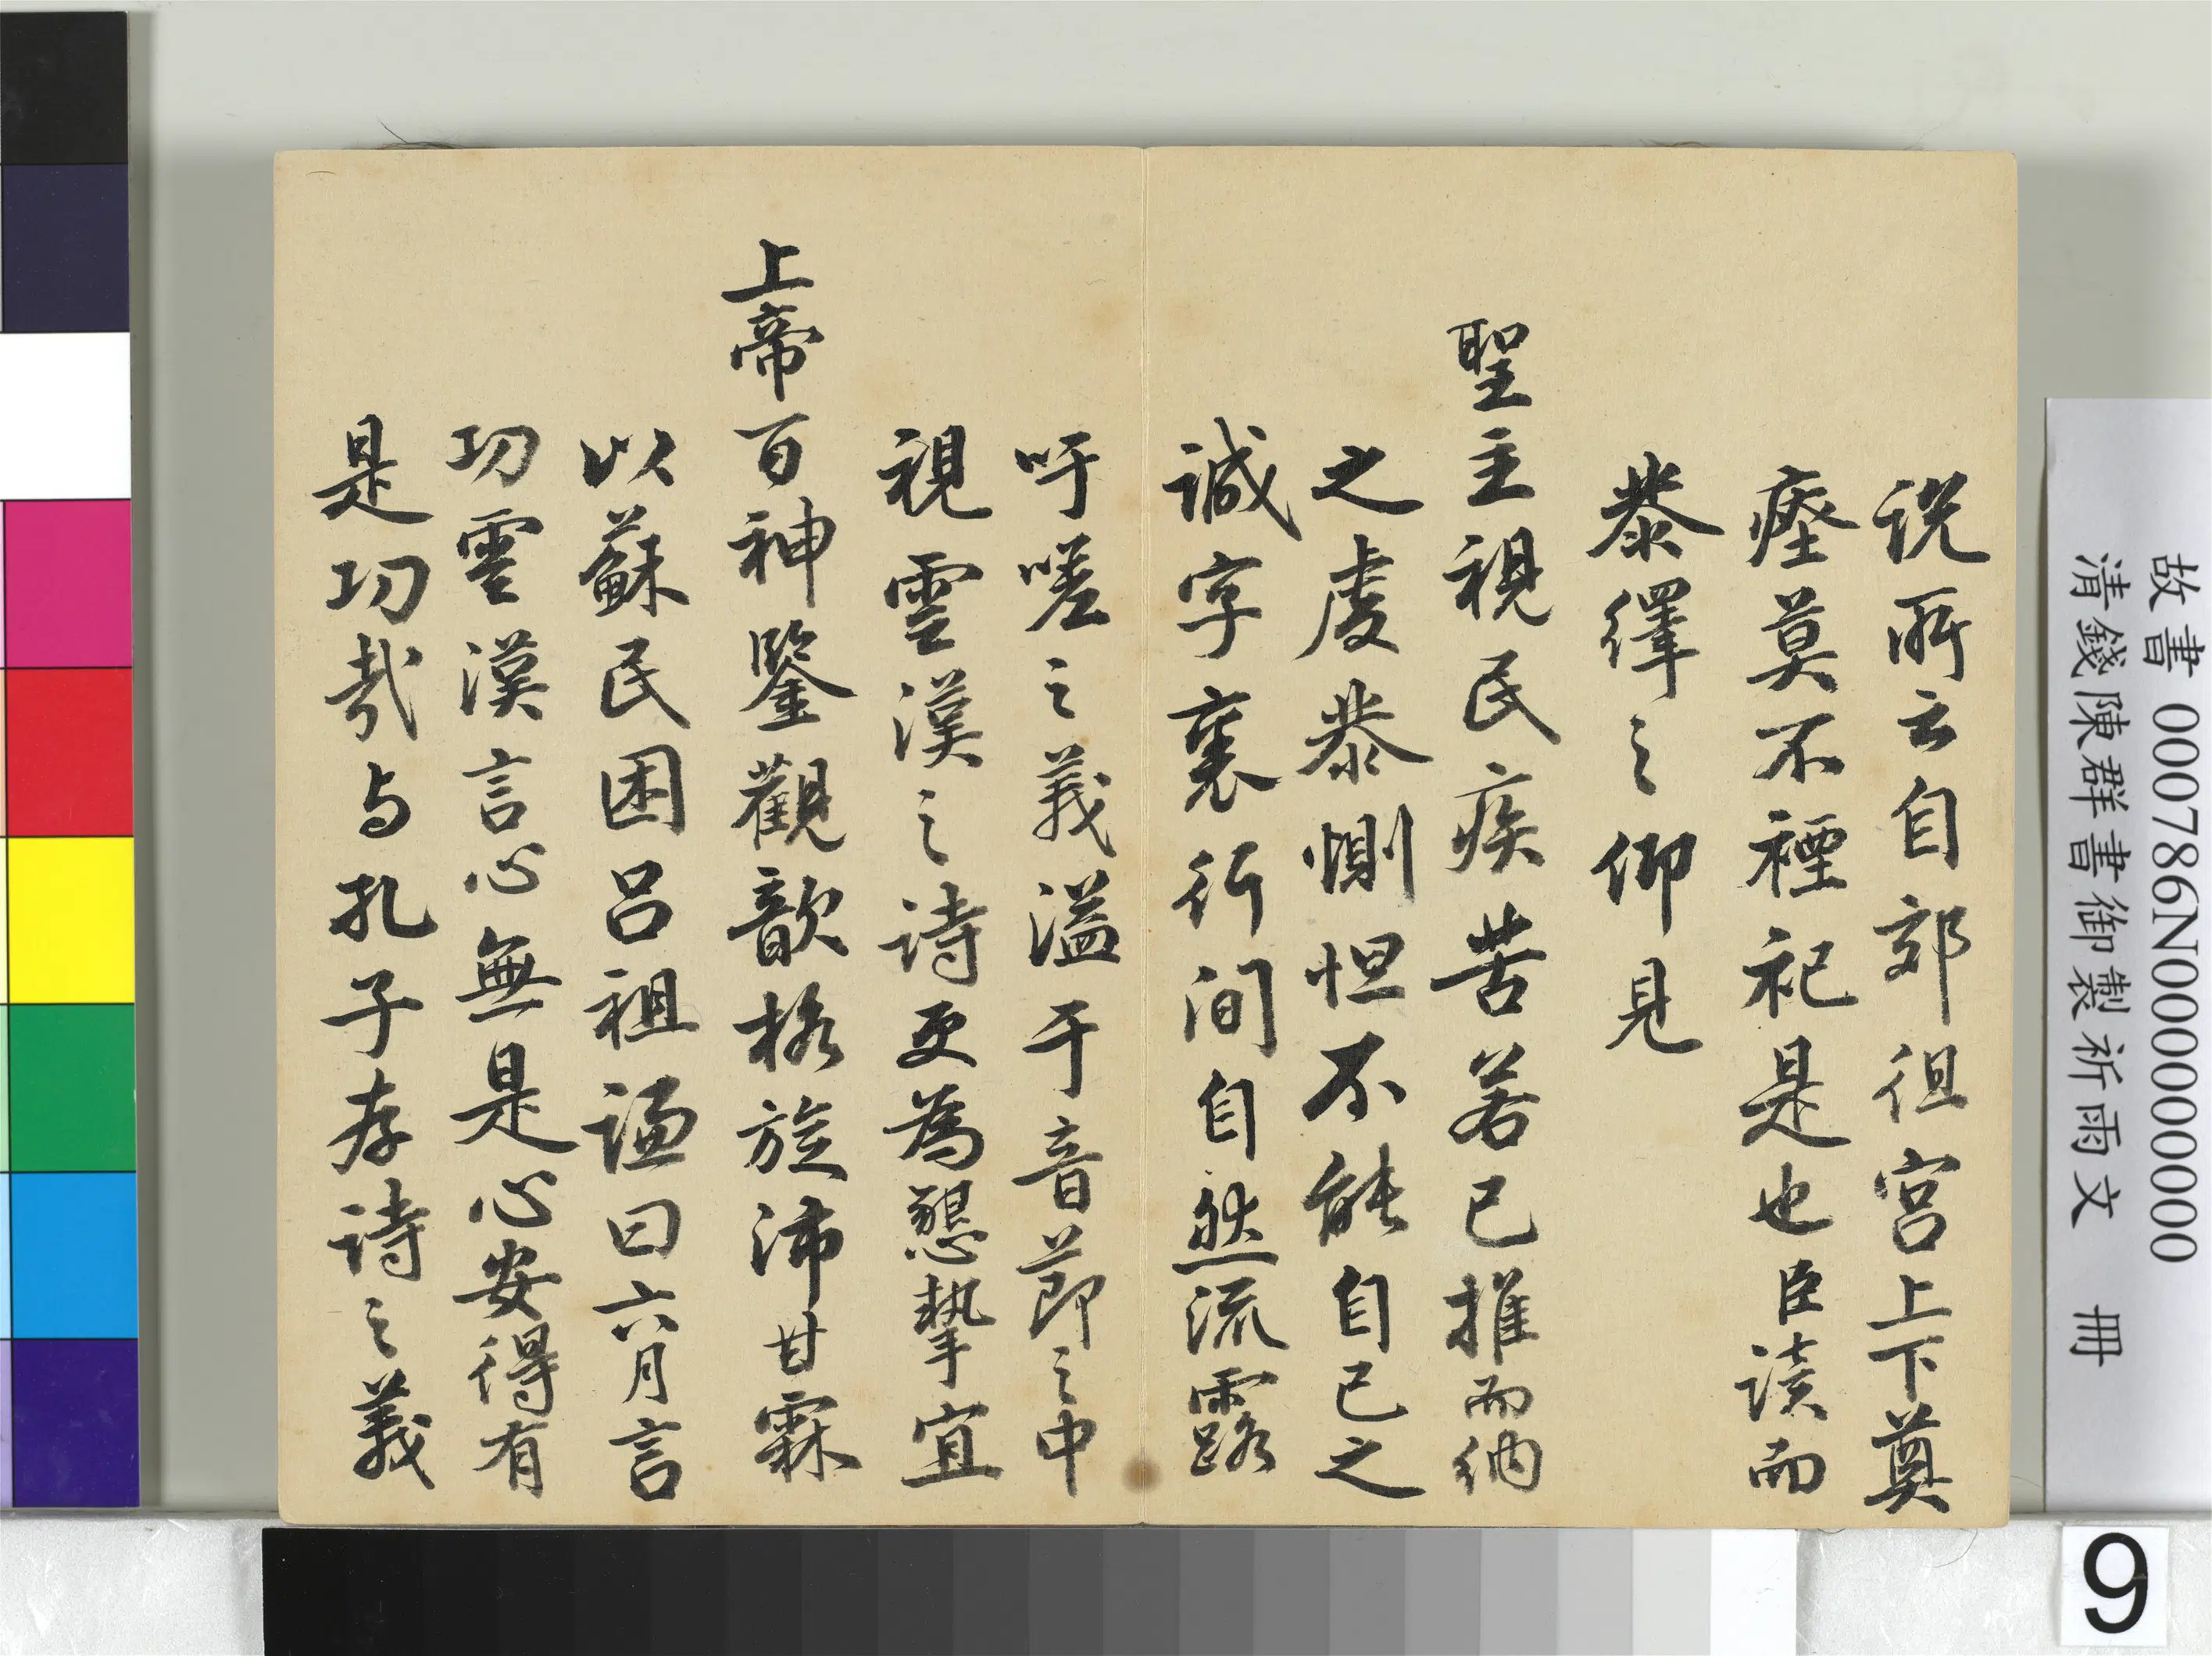 説所云自郊徂宮上下奠
瘞莫不禋祀是也臣讀而
恭繹之仰見
聖主視民疾苦若己推而納
之處恭惻怛不能自已之
誠字裏行間自然流露
吁嗟之義溢于音節之中
視雲漢之詩更為懇摯宜
上帝百神鑒觀歆格旋沛甘霖
以蘇民困呂祖謙曰六月言
功雲漢言心無是心安得有
是功哉与孔子存詩之義
故書 000786N000000000
清錢陳群書御製祈雨文 冊
9